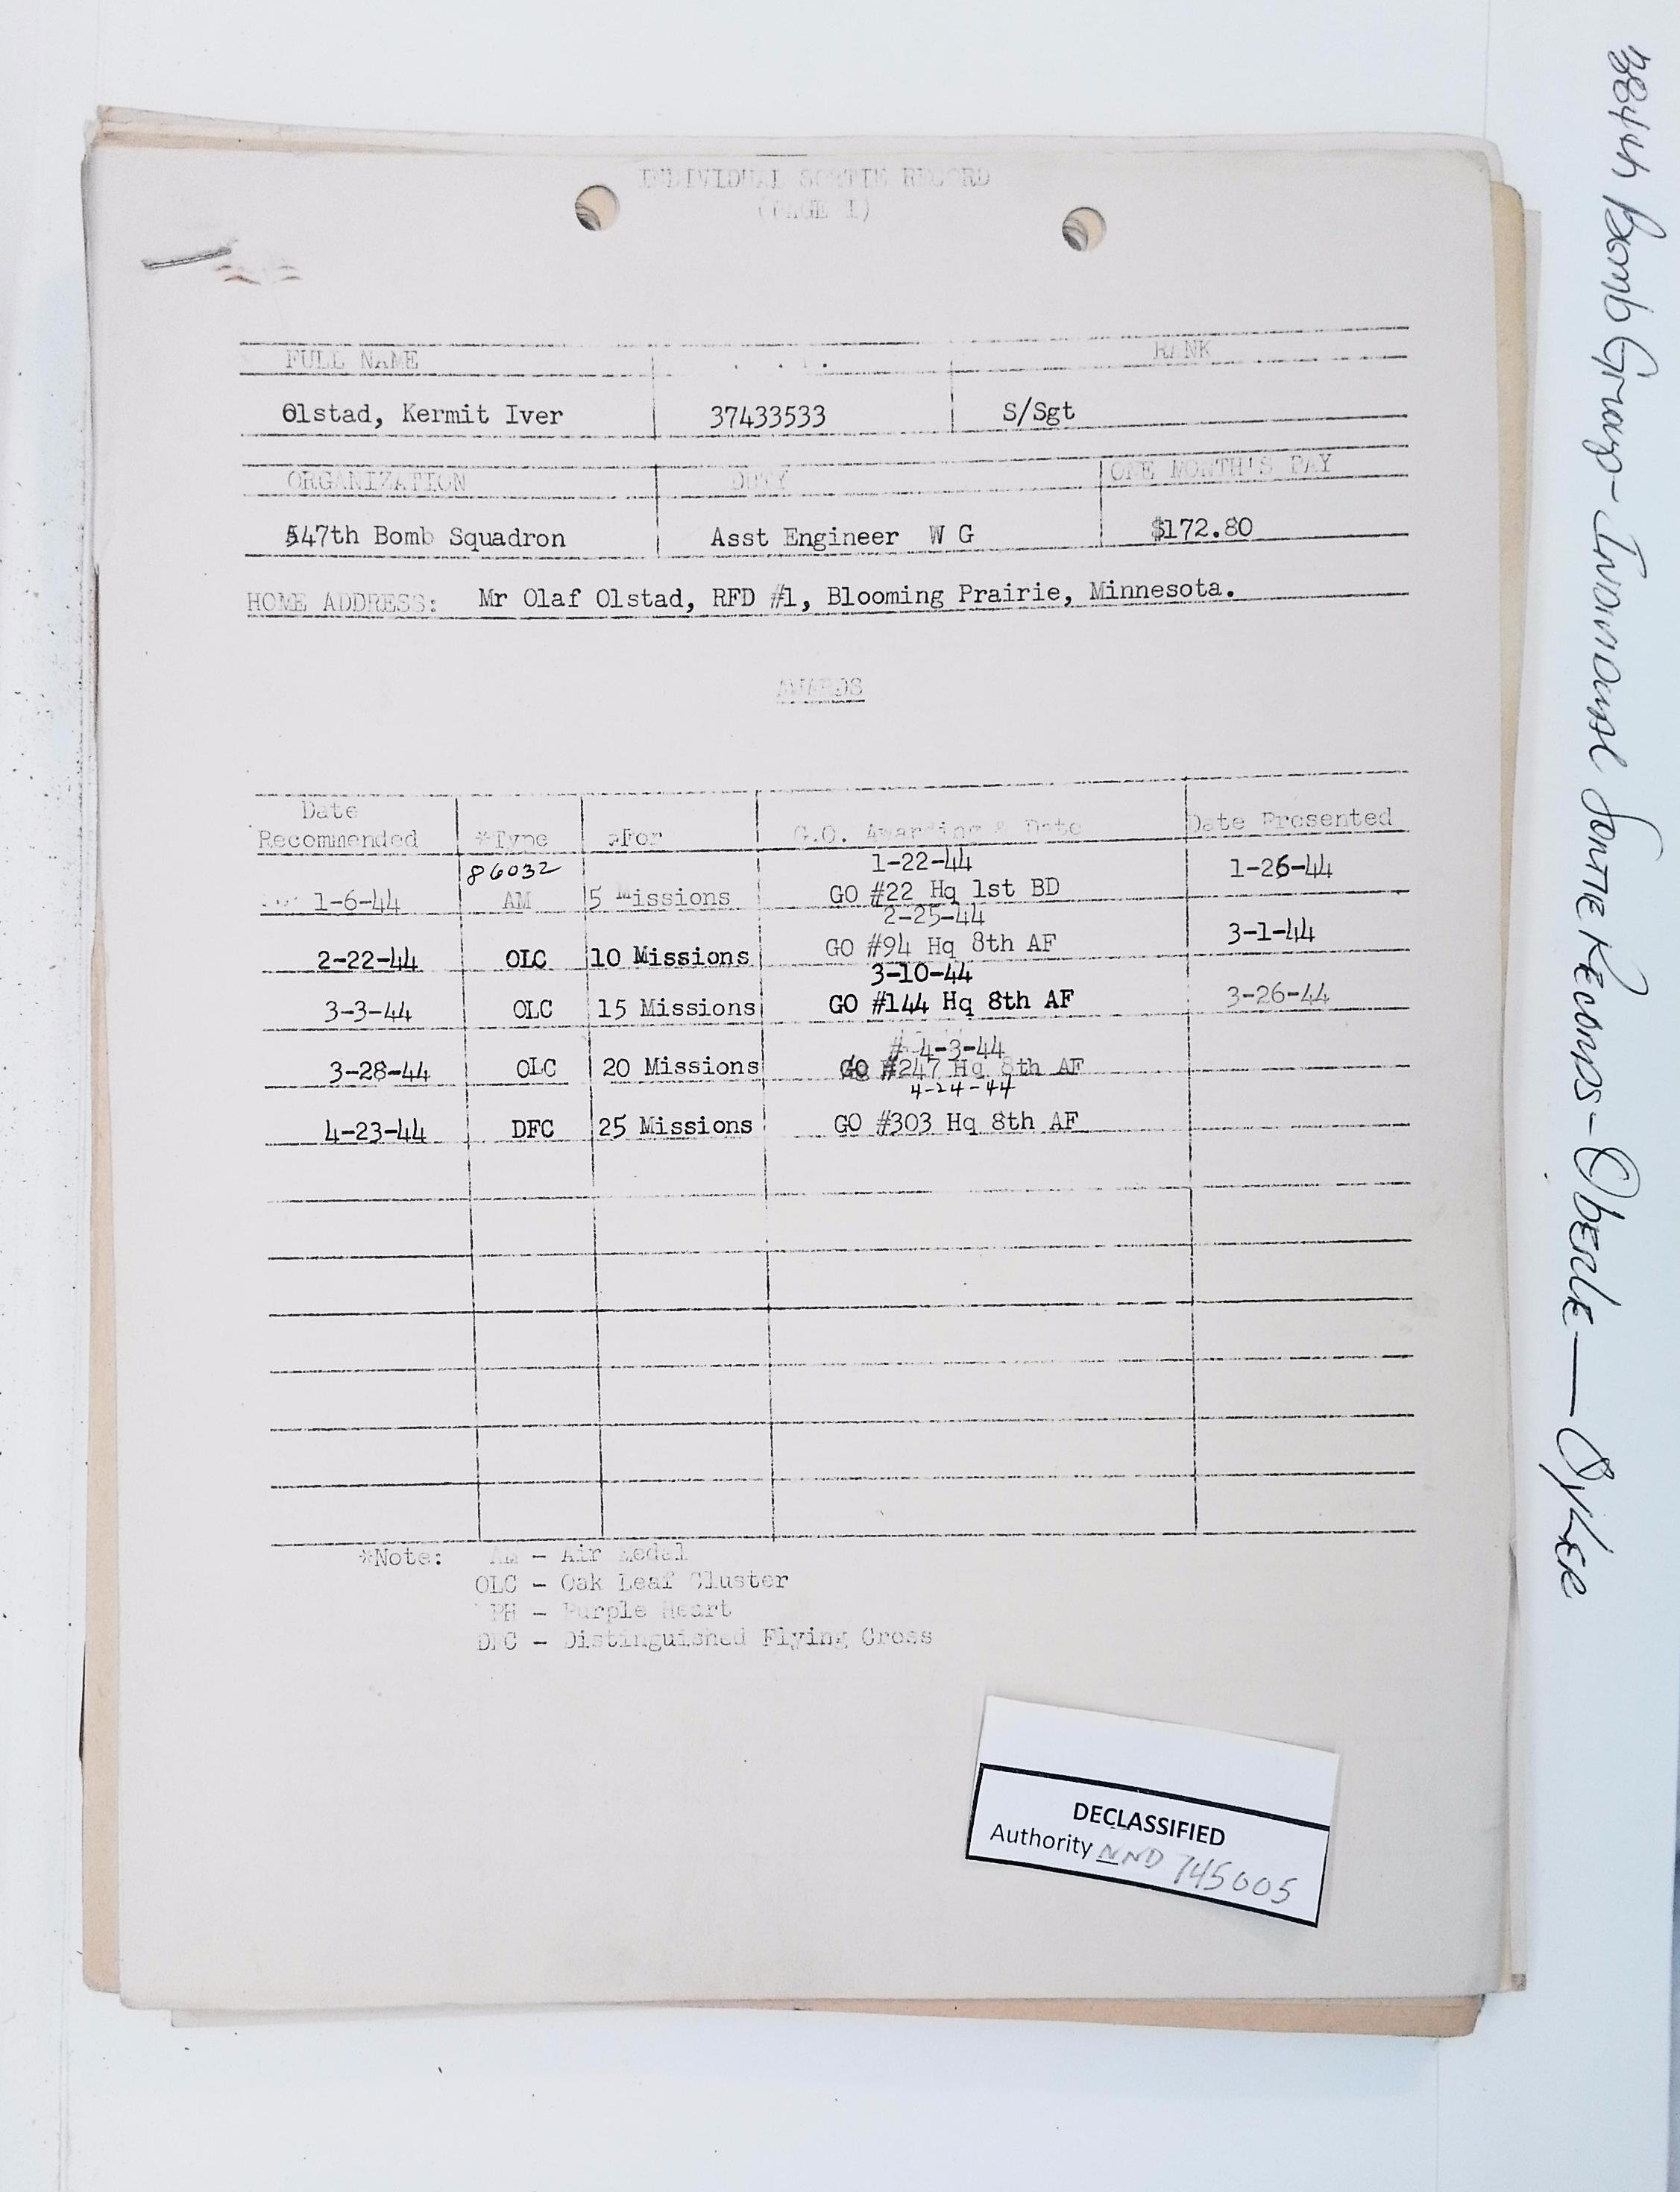 INDIVIDUAL SORTIE RECORD
(PAGE 1)
FULL NAME RANK
Olstad, Kermit Iver 37433533 S/Sgt
ORGANIZATION DUTY ONE MONTH'S PAY
547th Bomb Squadron Asst Engineer W G $172.80
HOME ADDRESS: Mr Olaf Olstad, RFD #1, Blooming Prairie, Minnesota.
AWARDS
Date
Recommended *Type *For G.O. Awarding & Date Date Presented
86032 1-22-44 1-26-44
1-6-44 AM 5 Missions GO #22 Hq 1st BD
2-25-44
2-22-44 OLC 10 Missions GO #94 Hq 8th AF 3-1-44
3-10-44
3-3-44 OLC 15 Missions GO #144 Hq 8th AF 3-26-44
# 4-3-44
3-28-44 OLC 20 Missions GO #247 Hq 8th AF
4-24-44
4-23-44 DFC 25 Missions GO #303 Hq 8th AF
*Note: AM - Air Medal
OLC - Oak Leaf Cluster
PH - Purple Heart
DFC - Distinguished Flying Cross
DECLASSIFIED
Authority NND 745005
384th Bomb Group - Individual Sortie Records - Oberle — Oyler